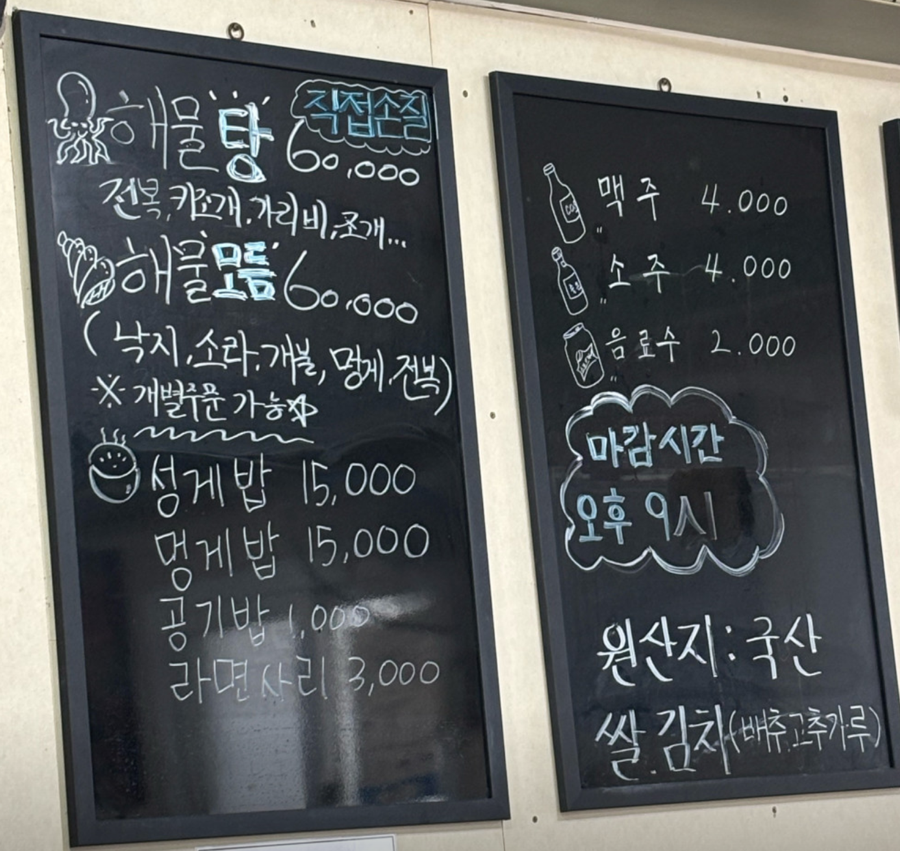 해물탕 직접손질
60,000
전복, 키조개, 가리비, 조개...
해물모듬 60,000
(낙지, 소라, 개불, 멍게, 전복)
※ 개별주문 가능
성게밥 15,000
멍게밥 15,000
공기밥 1,000
라면사리 3,000
맥주 4.000
소주 4.000
음료수 2.000
마감시간
오후 9시
원산지: 국산
쌀. 김치(배추, 고추가루)